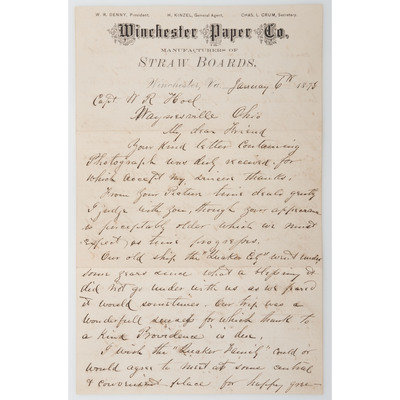 W. R. DENNY, President. H. KINZEL, General Agent. CHAS. L. CRUM, Secretary.
Winchester Paper Co.,
MANUFACTURERS OF
STRAW BOARDS.
Winchester, Va. January 6th 1875
Capt. W R Hoel
Waynesville Ohio
My dear Friend
Your kind letter containing
Photograph was duly received for
which accept my sincere thanks.
From your Picture time deals gently
I judge with you, though your appearance
is perceptably older which we must
expect as time progresses.
Our old ship the "Quaker City" went under
some years since what a blessing it
did not go under with us as we feared
it would sometimes. Our trip was a
wonderfull success for which thanks to
a Kind Providence is due.
I wish the "Quaker Family" could or
would agree to meet at some central
& convenient place for happy gree-